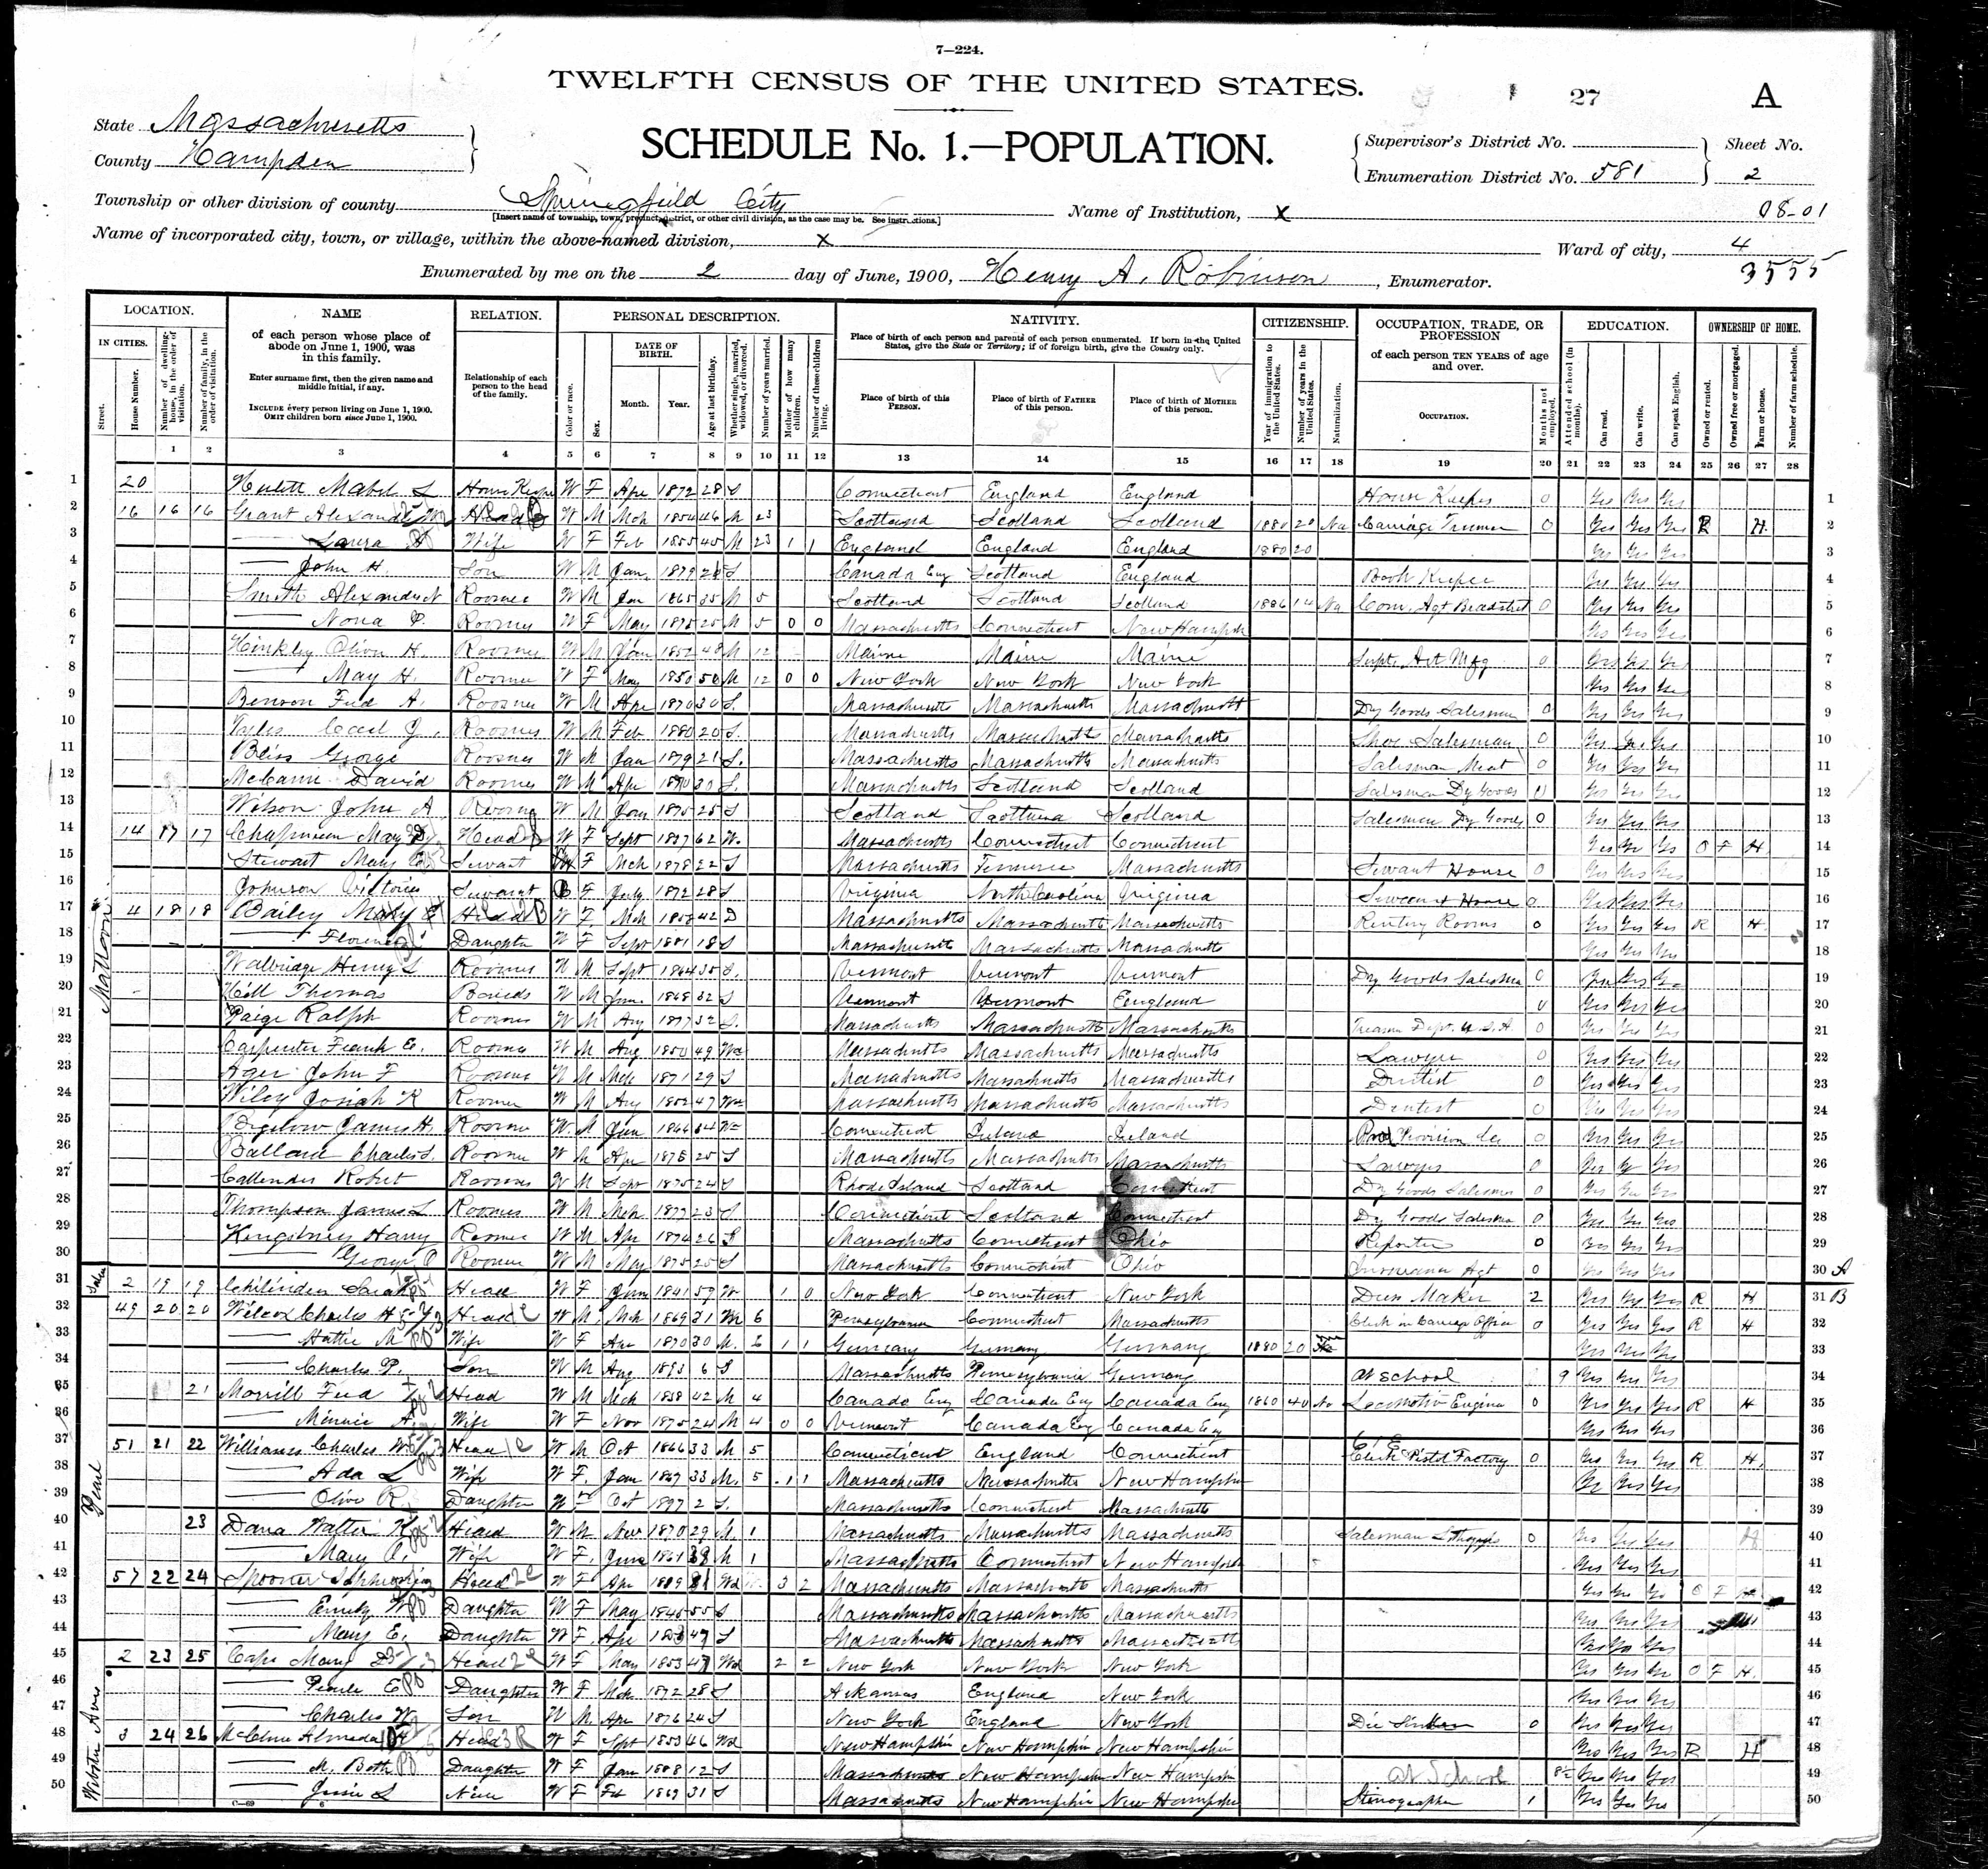 7—224.
TWELFTH CENSUS OF THE UNITED STATES.
27 A
State Massachusetts
County Hampden
SCHEDULE No. 1.—POPULATION.
Supervisor's District No.
Enumeration District No. 581
Sheet No.
2
Township or other division of county Springfield City
[Insert name of township, town, precinct, district, or other civil division, as the case may be. See instructions.]
Name of Institution, X
08-01
Name of incorporated city, town, or village, within the above-named division, X
Ward of city, 4
3555
Enumerated by me on the 2 day of June, 1900, Henry A. Robinson, Enumerator.
LOCATION. NAME RELATION. PERSONAL DESCRIPTION. NATIVITY. CITIZENSHIP. OCCUPATION, TRADE, OR PROFESSION EDUCATION. OWNERSHIP OF HOME.
IN CITIES. Street. House Number. Number of dwelling-house, in the order of visitation. Number of family, in the order of visitation.
of each person whose place of abode on June 1, 1900, was in this family.
Enter surname first, then the given name and middle initial, if any.
INCLUDE every person living on June 1, 1900. OMIT children born since June 1, 1900.
Relationship of each person to the head of the family.
Color or race. Sex. DATE OF BIRTH. Month. Year. Age at last birthday. Whether single, married, widowed, or divorced. Number of years married. Mother of how many children. Number of these children living.
Place of birth of each person and parents of each person enumerated. If born in the United States, give the State or Territory; if of foreign birth, give the Country only.
Place of birth of this PERSON. Place of birth of FATHER of this person. Place of birth of MOTHER of this person.
Year of immigration to the United States. Number of years in the United States. Naturalization.
of each person TEN YEARS of age and over.
OCCUPATION. Months not employed.
Attended school (in months). Can read. Can write. Can speak English.
Owned or rented. Owned free or mortgaged. Farm or house. Number of farm schedule.
1 2 3 4 5 6 7 8 9 10 11 12 13 14 15 16 17 18 19 20 21 22 23 24 25 26 27 28
1 20 Mabel L House Keeper W F Apr 1872 28 S Connecticut England England House Keeper 0 Yes Yes Yes 1
2 16 16 16 Grant Alexander Head W M Mch 1854 46 M 23 Scotland Scotland Scotland 1880 20 Na Carriage Trimmer 0 Yes Yes Yes R H 2
3 Laura Wife W F Feb 1855 45 M 23 1 1 England England England 1880 20 Yes Yes Yes 3
4 John H. Son W M Jan 1879 21 S Canada Eng Scotland England Book Keeper Yes Yes Yes 4
5 Smith Alexander N Roomer W M Jan 1865 35 M 5 Scotland Scotland Scotland 1886 14 Na Com. Agt Bradstreet 0 Yes Yes Yes 5
6 Nona Roomer W F May 1875 25 M 5 0 0 Massachusetts Connecticut New Hampshire Yes Yes Yes 6
7 Hinkley Oliver H. Roomer W M Jan 1852 48 M 12 Maine Maine Maine Supt. Art Mfg 0 Yes Yes Yes 7
8 May H. Roomer W F May 1850 50 M 12 0 0 New York New York New York Yes Yes Yes 8
9 Benson Fred A. Roomer W M Apr 1870 30 S. Massachusetts Massachusetts Massachusetts Dry Goods Salesman 0 Yes Yes Yes 9
10 Cecil J. Roomer W M Feb 1880 20 S. Massachusetts Massachusetts Massachusetts Shoe Salesman 0 Yes Yes Yes 10
11 Bliss George Roomer W M Jan 1879 21 S. Massachusetts Massachusetts Massachusetts Salesman Meat 0 Yes Yes Yes 11
12 McCann David Roomer W M Apr 1870 30 S. Massachusetts Scotland Scotland Salesman Dry Goods Yes Yes Yes 12
13 Wilson John A Roomer W M Jan 1875 25 S Scotland Scotland Scotland Salesman Dry Goods 0 Yes Yes Yes 13
14 14 17 17 Chapman Mary D Head W F Sept 1837 62 W. Massachusetts Connecticut Connecticut Yes Yes Yes O F H. 14
15 Stewart Mary Servant F Mch 1878 22 S Massachusetts Massachusetts Servant House 0 Yes Yes Yes 15
16 Johnson Victoria Servant B F July 1872 28 S Virginia North Carolina Virginia Servant House 0 Yes Yes Yes 16
17 4 18 18 Bailey Mary E Head W F Mch 1858 42 D Massachusetts Massachusetts Massachusetts Renting Rooms 0 Yes Yes Yes R H. 17
18 Florence Daughter W F Sept 1881 18 S Massachusetts Massachusetts Massachusetts Yes Yes Yes 18
19 Walbridge Henry L Roomer W M Sept 1864 35 S. Vermont Vermont Vermont Dry Goods Salesman 0 Yes Yes Yes 19
20 Hill Thomas W M June 1868 32 S Vermont Vermont England Yes Yes Yes 20
21 Paige Ralph Roomer W M Aug 1877 32 S. Massachusetts Massachusetts Massachusetts Treasury Dept. U.S.A. 0 Yes Yes Yes 21
22 Carpenter Frank E. Roomer W M Aug 1850 49 Wd Massachusetts Massachusetts Massachusetts Lawyer 0 Yes Yes Yes 22
23 John F Roomer W M Mch 1871 29 S Massachusetts Massachusetts Massachusetts Dentist 0 Yes Yes Yes 23
24 Wiley Josiah R Roomer W M Aug 1852 47 Wd Massachusetts Massachusetts Massachusetts Dentist 0 Yes Yes Yes 24
25 Bigelow James H. Roomer W M Jan Connecticut Ireland Ireland Provision 0 Yes Yes Yes 25
26 Ballard Charles S. Roomer W M Apr 1875 25 S Massachusetts Massachusetts Massachusetts Lawyer 0 Yes Yes Yes 26
27 Callender Robert Roomer W M Sept 1875 24 S Rhode Island Scotland Connecticut Dry Goods Salesman 0 Yes Yes Yes 27
28 Thompson James L Roomer W M Mch 1877 23 S Connecticut Scotland Connecticut Dry Goods Salesman 0 Yes Yes Yes 28
29 Kingsbury Harry Roomer W M Apr 1874 26 S Massachusetts Connecticut Ohio Reporter 0 Yes Yes Yes 29
30 George Roomer W M May 1875 25 S Massachusetts Connecticut Ohio Insurance Agt 0 Yes Yes Yes 30 A
31 2 19 19 Sarah Head W F Jan 1841 59 W 1 0 New York Connecticut New York Dress Maker 2 Yes Yes Yes R H 31 B
32 49 20 20 Wilcox Charles H Head W M. Mch 1869 31 M 6 Pennsylvania Connecticut Massachusetts Clerk in Carriage Office 0 Yes Yes Yes R H 32
33 Hattie M Wife W F Apr 1870 30 M. 6 1 1 Germany Germany Germany 1880 20 Yes Yes Yes 33
34 Charles P. Son W M Aug 1893 6 S Massachusetts Pennsylvania Germany At School 9 Yes Yes Yes 34
35 21 Morrill Fred Head W M Mch 1858 42 M 4 Canada Eng Canada Eng Canada Eng 1860 40 Na Locomotive Engineer 0 Yes Yes Yes R H 35
36 Minnie A. Wife W F Nov 1875 24 M 4 0 0 Vermont Canada Eng Canada Eng Yes Yes Yes 36
37 51 21 22 Williams Charles W. Head W M Oct 1866 33 M 5 Connecticut England Connecticut Clerk Pistol Factory 0 Yes Yes Yes R H. 37
38 Ada L Wife W F. Jan 1867 33 M. 5 1 1 Massachusetts Massachusetts New Hampshire Yes Yes Yes 38
39 Olive R. Daughter W F Oct 1897 2 S. Massachusetts Connecticut Massachusetts 39
40 23 Dana Walter Head W M Nov 1870 29 M. 1 Massachusetts Massachusetts Massachusetts Salesman 0 Yes Yes Yes 40
41 Mary Wife W F. June 1861 38 M 1 Massachusetts Connecticut New Hampshire Yes Yes Yes 41
42 57 22 24 Spooner Head W F Apr 81 Wd 3 2 Massachusetts Massachusetts Massachusetts Yes Yes Yes O F H 42
43 Emily Daughter W F May 1845 55 S Massachusetts Massachusetts Massachusetts Yes Yes Yes 43
44 Mary E. Daughter W F. Apr 1853 47 S Massachusetts Massachusetts Massachusetts Yes Yes Yes 44
45 2 23 25 Mary Head W F May 1853 47 Wd 2 2 New York New York New York Yes Yes Yes O F H. 45
46 Pearle E Daughter W F Mch 1872 28 S Arkansas England New York Yes Yes Yes 46
47 Charles W. Son W M. Apr 1876 24 S New York England New York Die Sinker 0 Yes Yes Yes 47
48 3 24 26 McClure Almeda Head W F Sept 1853 46 Wd New Hampshire New Hampshire New Hampshire Yes Yes Yes R H 48
49 M. Beth Daughter W F Jan 1888 12 S Massachusetts New Hampshire New Hampshire At School 8½ Yes Yes Yes 49
50 Jessie L Niece W F Feb 1869 31 S Massachusetts New Hampshire New Hampshire Stenographer 1 Yes Yes Yes 50
Mattoon
Salem
Pearl
Webster Ave
C—69 6